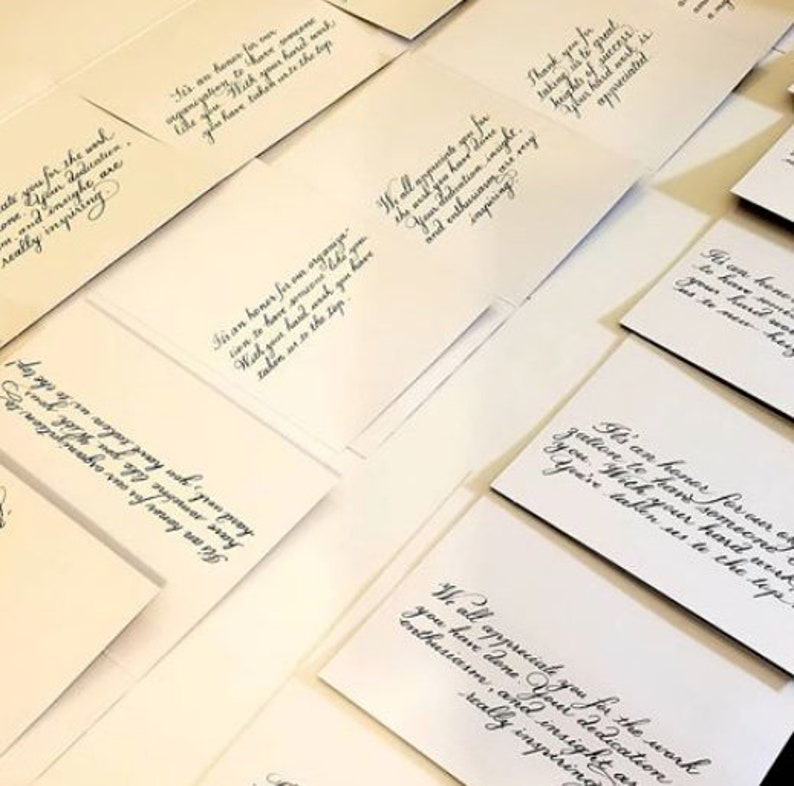 It's an honor for our
organization to have someone
like you. With your hard work
you have taken us to the top.
Thank you for
taking us to great
heights of success
Your hard work is
appreciated
ate you for the work
one. Your dedication,
m and insight are
really inspiring
We all appreciate you for
the work you have done
Your dedication, insight,
and enthusiasm are very
inspiring
It's an honor for our organiza-
tion to have someone like you.
With your hard work you have
taken us to the top.
It's an honor
to have some
your hard wor
us to new heig
It's an honor for our organization to
have someone like you. With your
hard work, you have taken us to the top!
It's an honor for our org
zation to have someone
you. With your hard work,
You've taken us to the top
We all appreciate you for the work
you have done. Your dedication
enthusiasm, and insight are
really inspiring